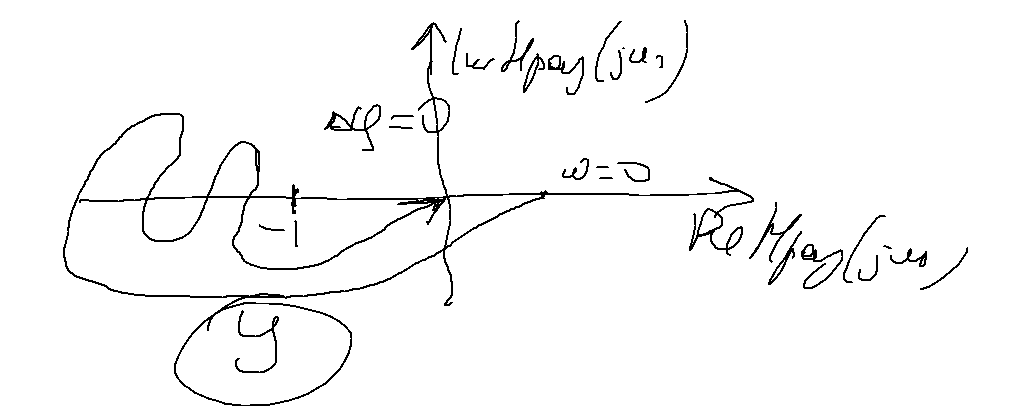 Im Hраз(jω)
Δφ=0
ω=0
-1
Re Hраз(jω)
У